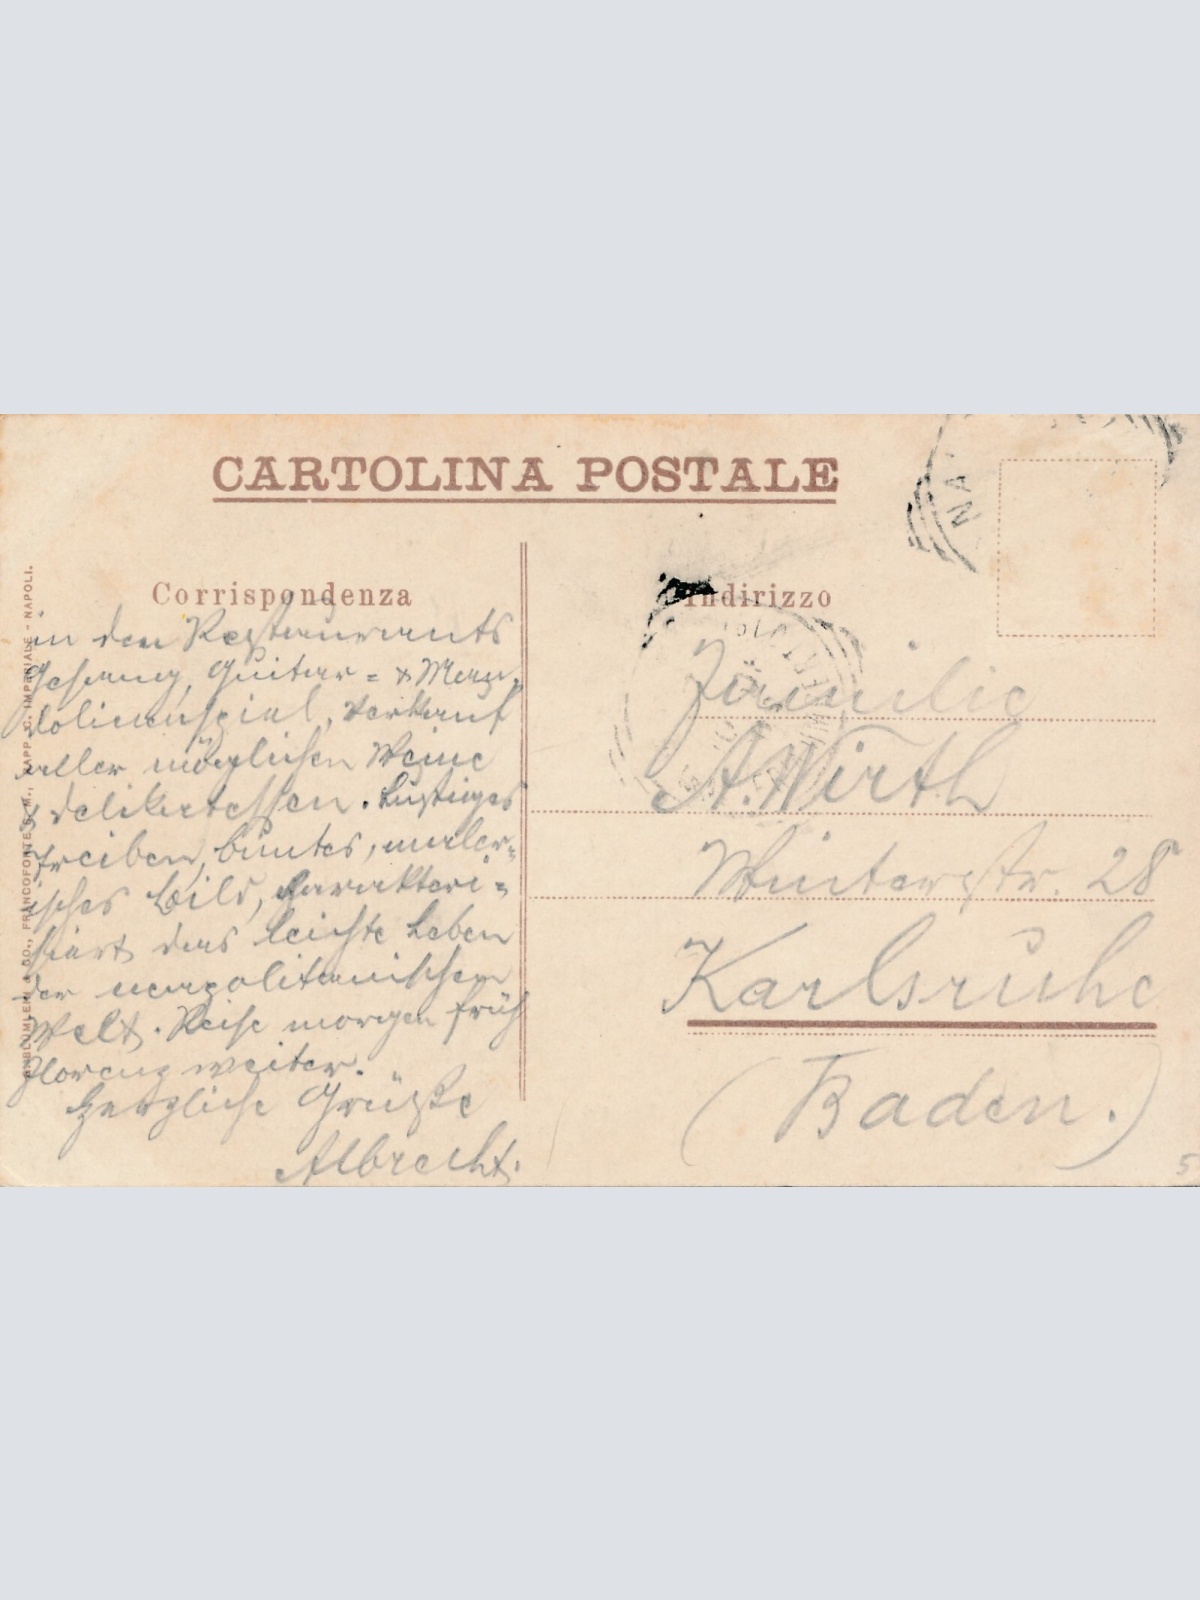 CARTOLINA POSTALE
Corrispondenza
in den Restaurants
Gesang, Guitar= & Man=
dolinenspiel, Verkauf
aller möglichen Weine
& Delikatessen. Lustiges
Treiben, buntes, maler=
isches Bild, karakteri=
siert das leichte Leben
der neapolitanischen
Welt. Reise morgen früh
Florenz weiter.
Herzliche Grüße
Albrecht.
Indirizzo
Familie
A. Wirth
Winterstr. 28
Karlsruhe
(Baden.)
NA
5
FRANCOFORTE S. M., RAPP. C. IMPERIALE - NAPOLI.